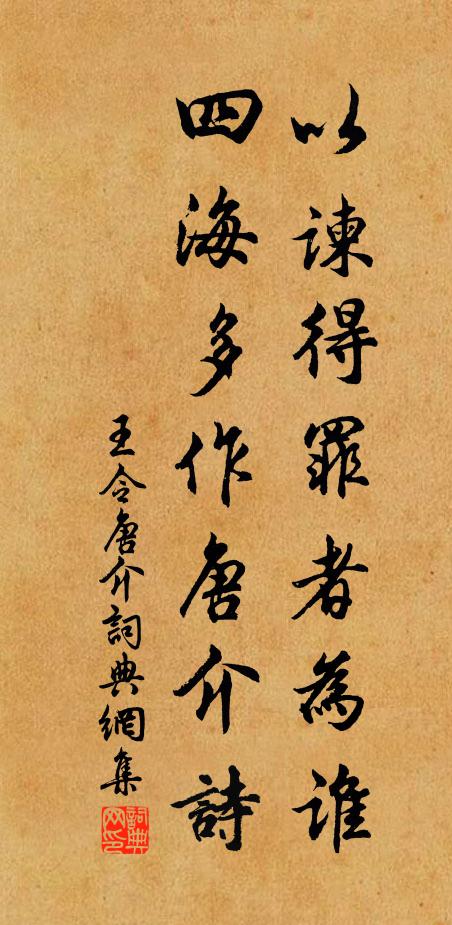 以諫得罪者為誰
四海多作唐介詩
王令唐介詞典網集
詞典网印